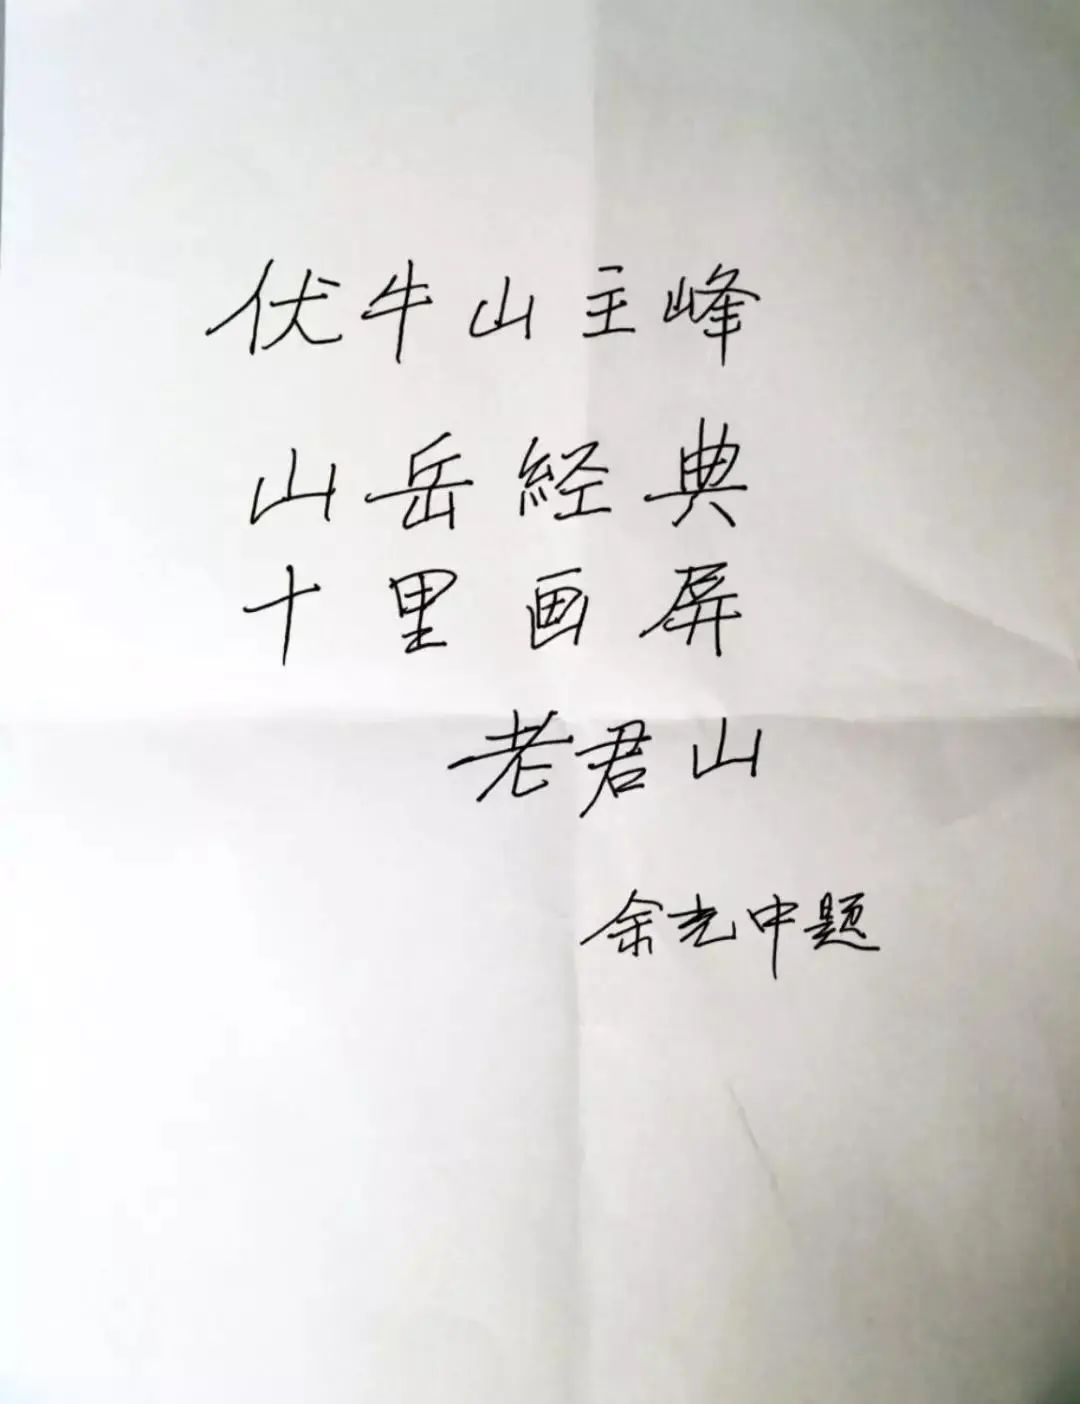 伏牛山主峰
山岳経典
十里画屏
老君山
余光中题